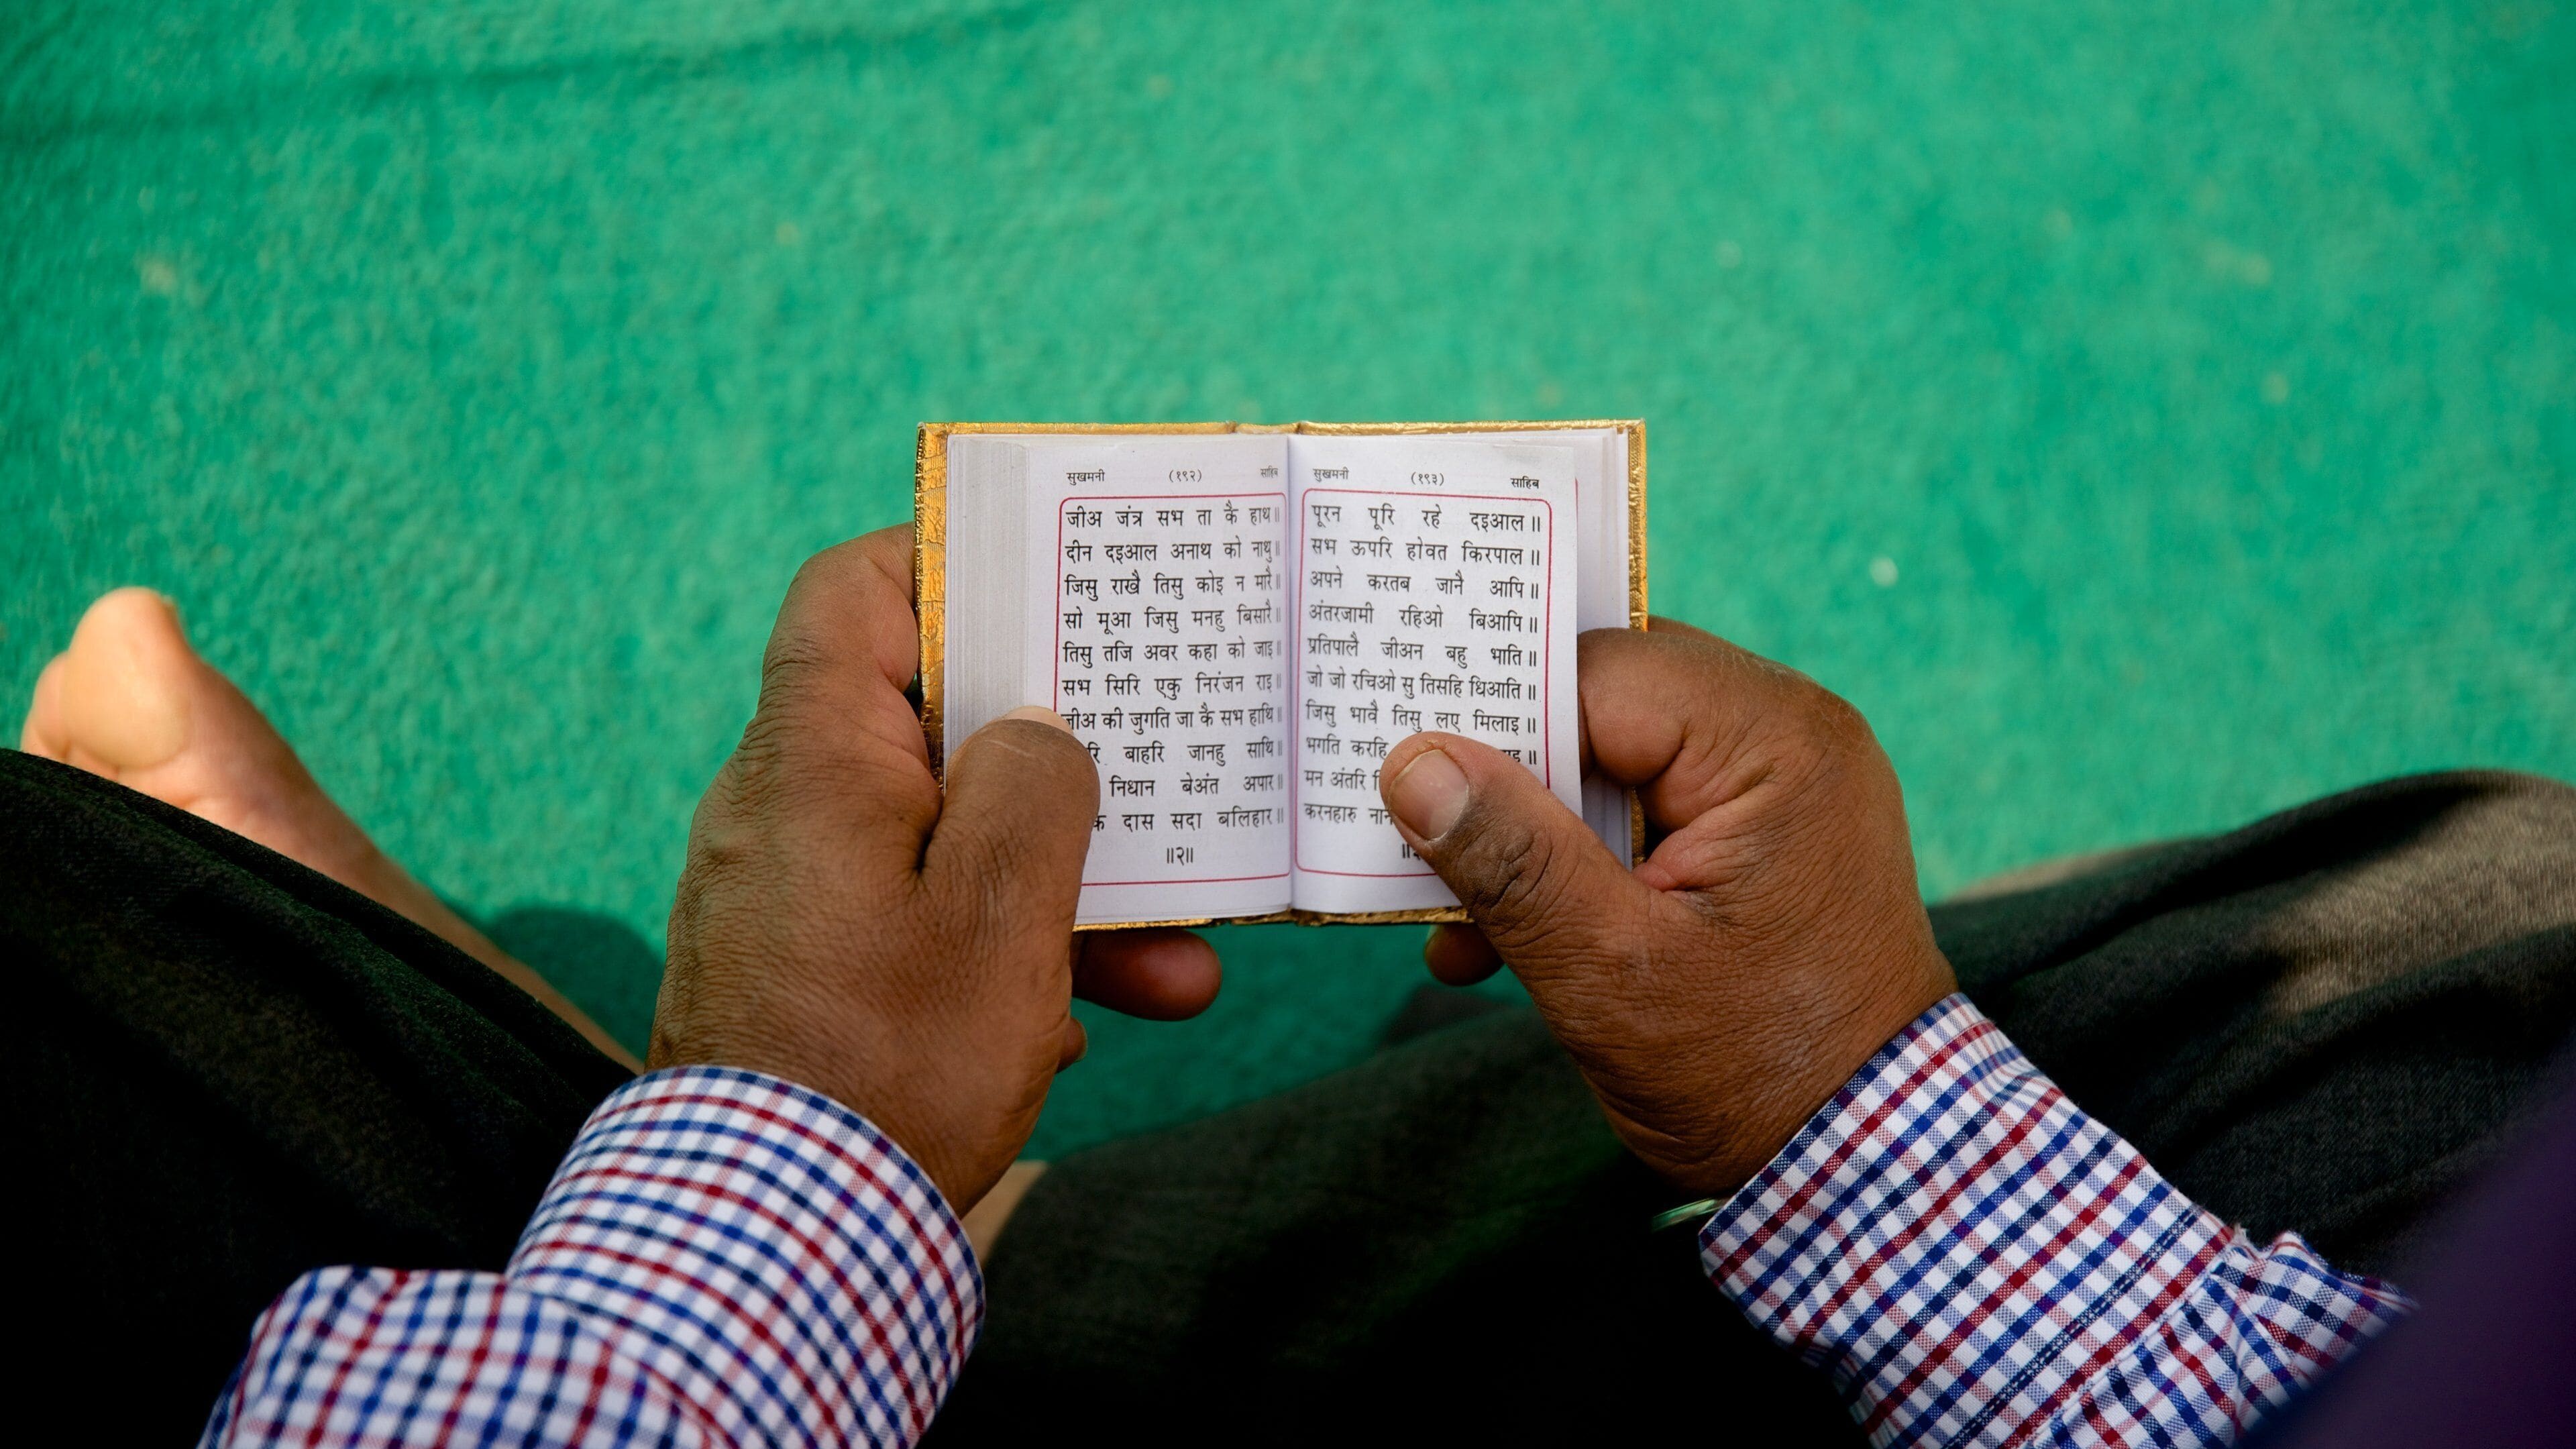 सुखमनी (१९२) साहिब
जीअ जंत्र सभ ता कै हाथ॥
दीन दइआल अनाथ को नाथु॥
जिसु राखै तिसु कोइ न मारै॥
सो मूआ जिसु मनहु बिसारै॥
तिसु तजि अवर कहा को जाइ॥
सभ सिरि एकु निरंजन राइ॥
जीअ की जुगति जा कै सभ हाथि॥
बाहरि जानहु साथि॥
निधान बेअंत अपार॥
दास सदा बलिहार॥
॥२॥
सुखमनी (१९३) साहिब
पूरन पूरि रहे दइआल॥
सभ ऊपरि होवत किरपाल॥
अपने करतब जानै आपि॥
अंतरजामी रहिओ बिआपि॥
प्रतिपालै जीअन बहु भाति॥
जो जो रचिओ सु तिसहि धिआति॥
जिसु भावै तिसु लए मिलाइ॥
भगति करहि
मन अंतरि
करनहारु